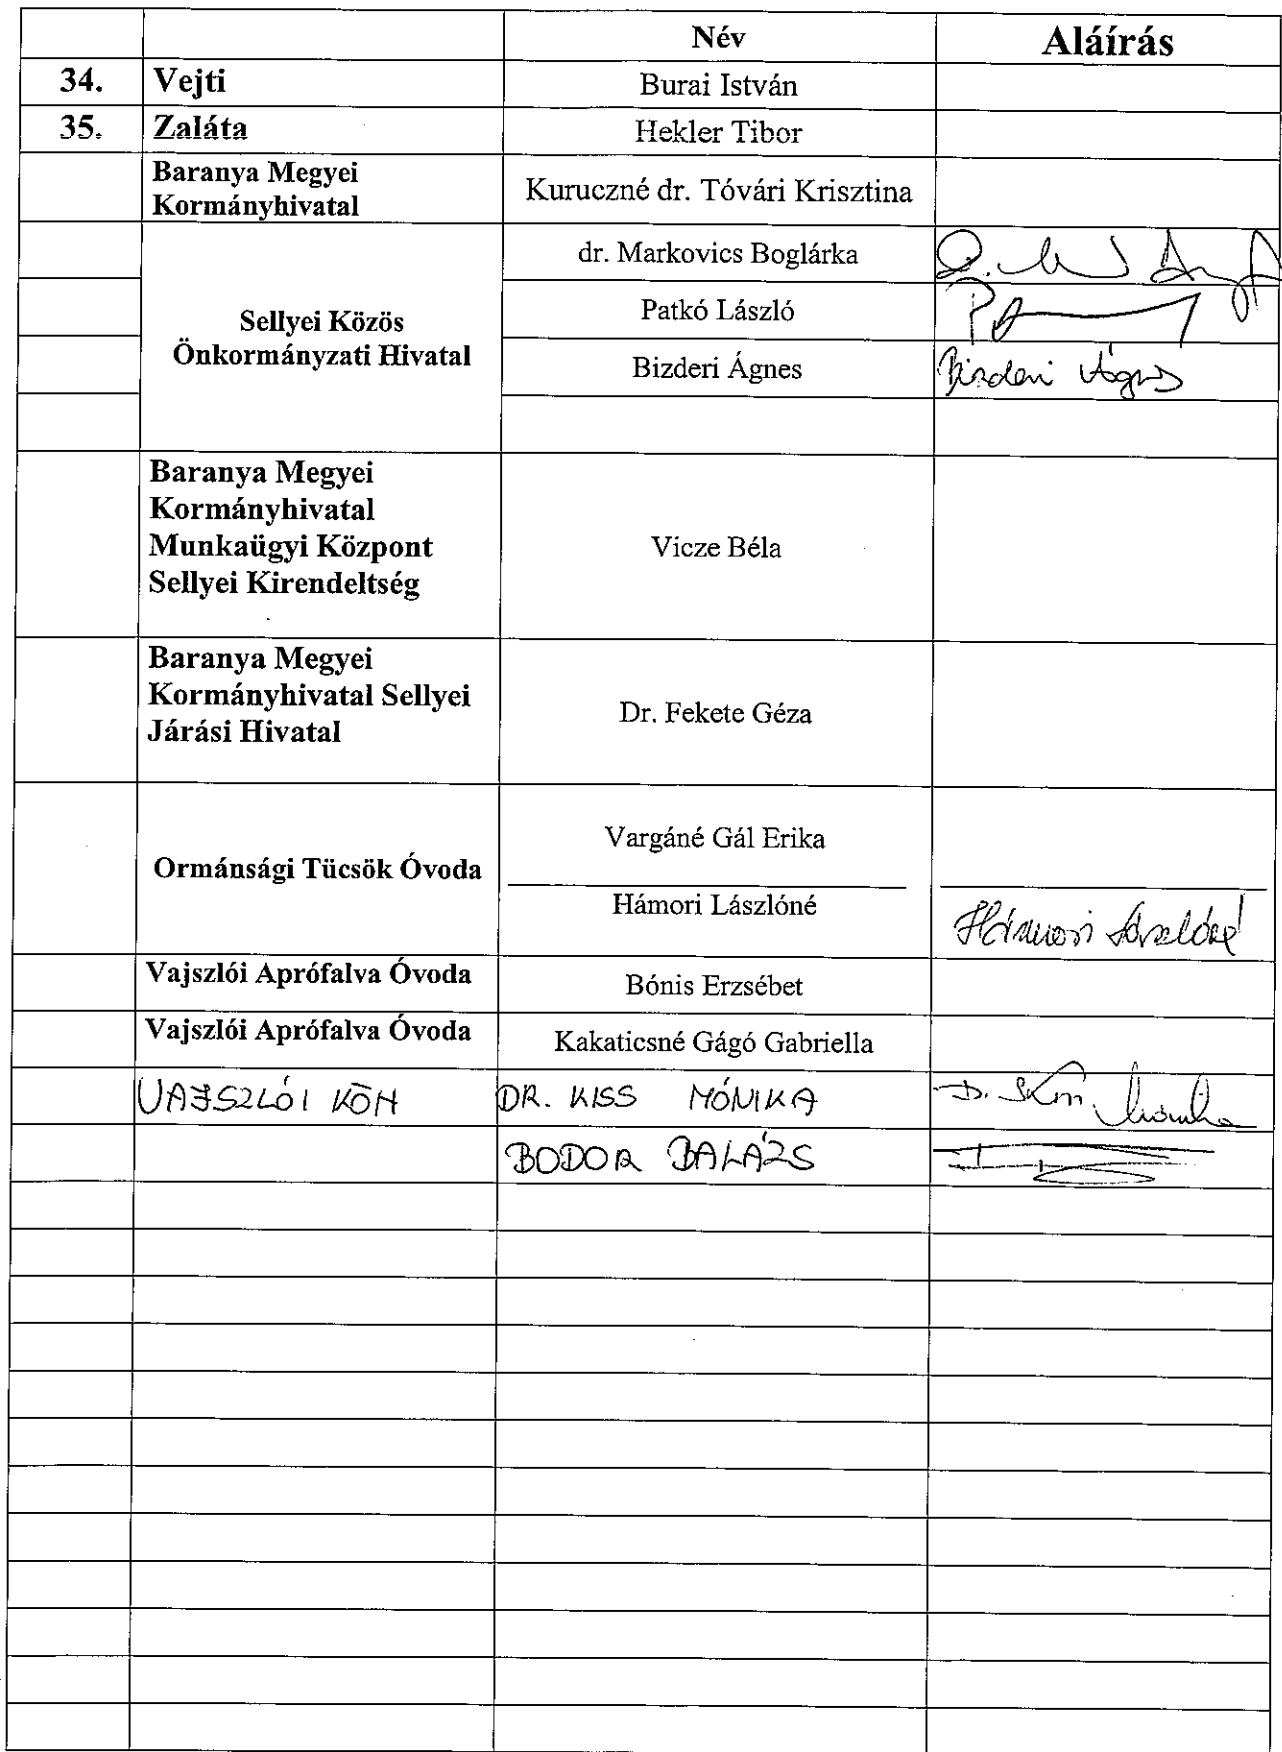 Név Aláírás
34. Vejti Burai István
35. Zaláta Hekler Tibor
Baranya Megyei
Kormányhivatal
Kuruczné dr. Tóvári Krisztina
Sellyei Közös
Önkormányzati Hivatal
dr. Markovics Boglárka
Patkó László
Bizderi Ágnes Bizderi Ágnes
Baranya Megyei
Kormányhivatal
Munkaügyi Központ
Sellyei Kirendeltség
Vicze Béla
Baranya Megyei
Kormányhivatal Sellyei
Járási Hivatal
Dr. Fekete Géza
Ormánsági Tücsök Óvoda
Vargáné Gál Erika
Hámori Lászlóné Hámori Lászlóné
Vajszlói Aprófalva Óvoda Bónis Erzsébet
Vajszlói Aprófalva Óvoda Kakaticsné Gágó Gabriella
VAJSZLÓI KÖH DR. KISS MÓNIKA
BODOR BALÁZS